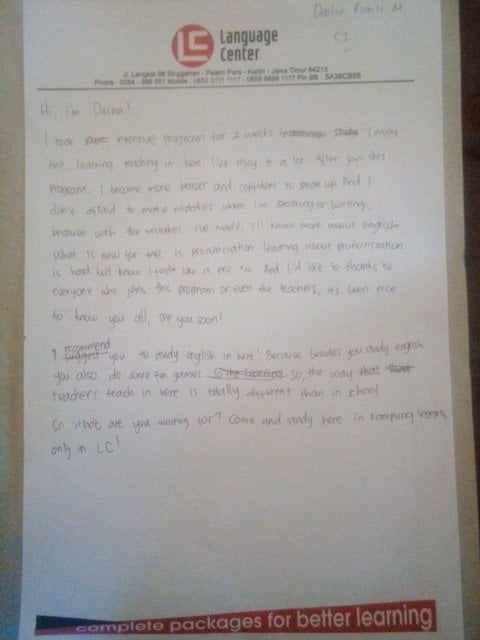 Dasha Rianti M.
C2
LC Language
Center
Jl. Langkat 88 Singgahan - Pelem Pare - Kediri - Jawa Timur 64213
Phone : 0354 - 398 561 Mobile : 0852 3111 1117 - 0856 9888 1117 Pin BB : 5A38CB55
Hi, I'm Dasha!
I took intensive program for 2 weeks learning study I enjoy
the learning teaching in here I've enjoy it a lot. After join this
program. I become more braver and confident to speak up. And I
don't afraid to make mistakes when i'm speaking or writing,
because with the mistakes I've made, I'll know more about english.
What is new for me is pronunciation. learning about pronunciation
is hard but know i feels like a pro. And I'd like to thanks to
everyone who joins this program or even the teachers, it's been nice
to know you all, see you soon!
I suggest recommend you to study english in here! Because besides you study english
you also do some fun games. So, the way that
teachers teach in here is totally different than in school
So what are you waiting for? Come and study here in Kampung Inggris,
only in LC!
complete packages for better learning